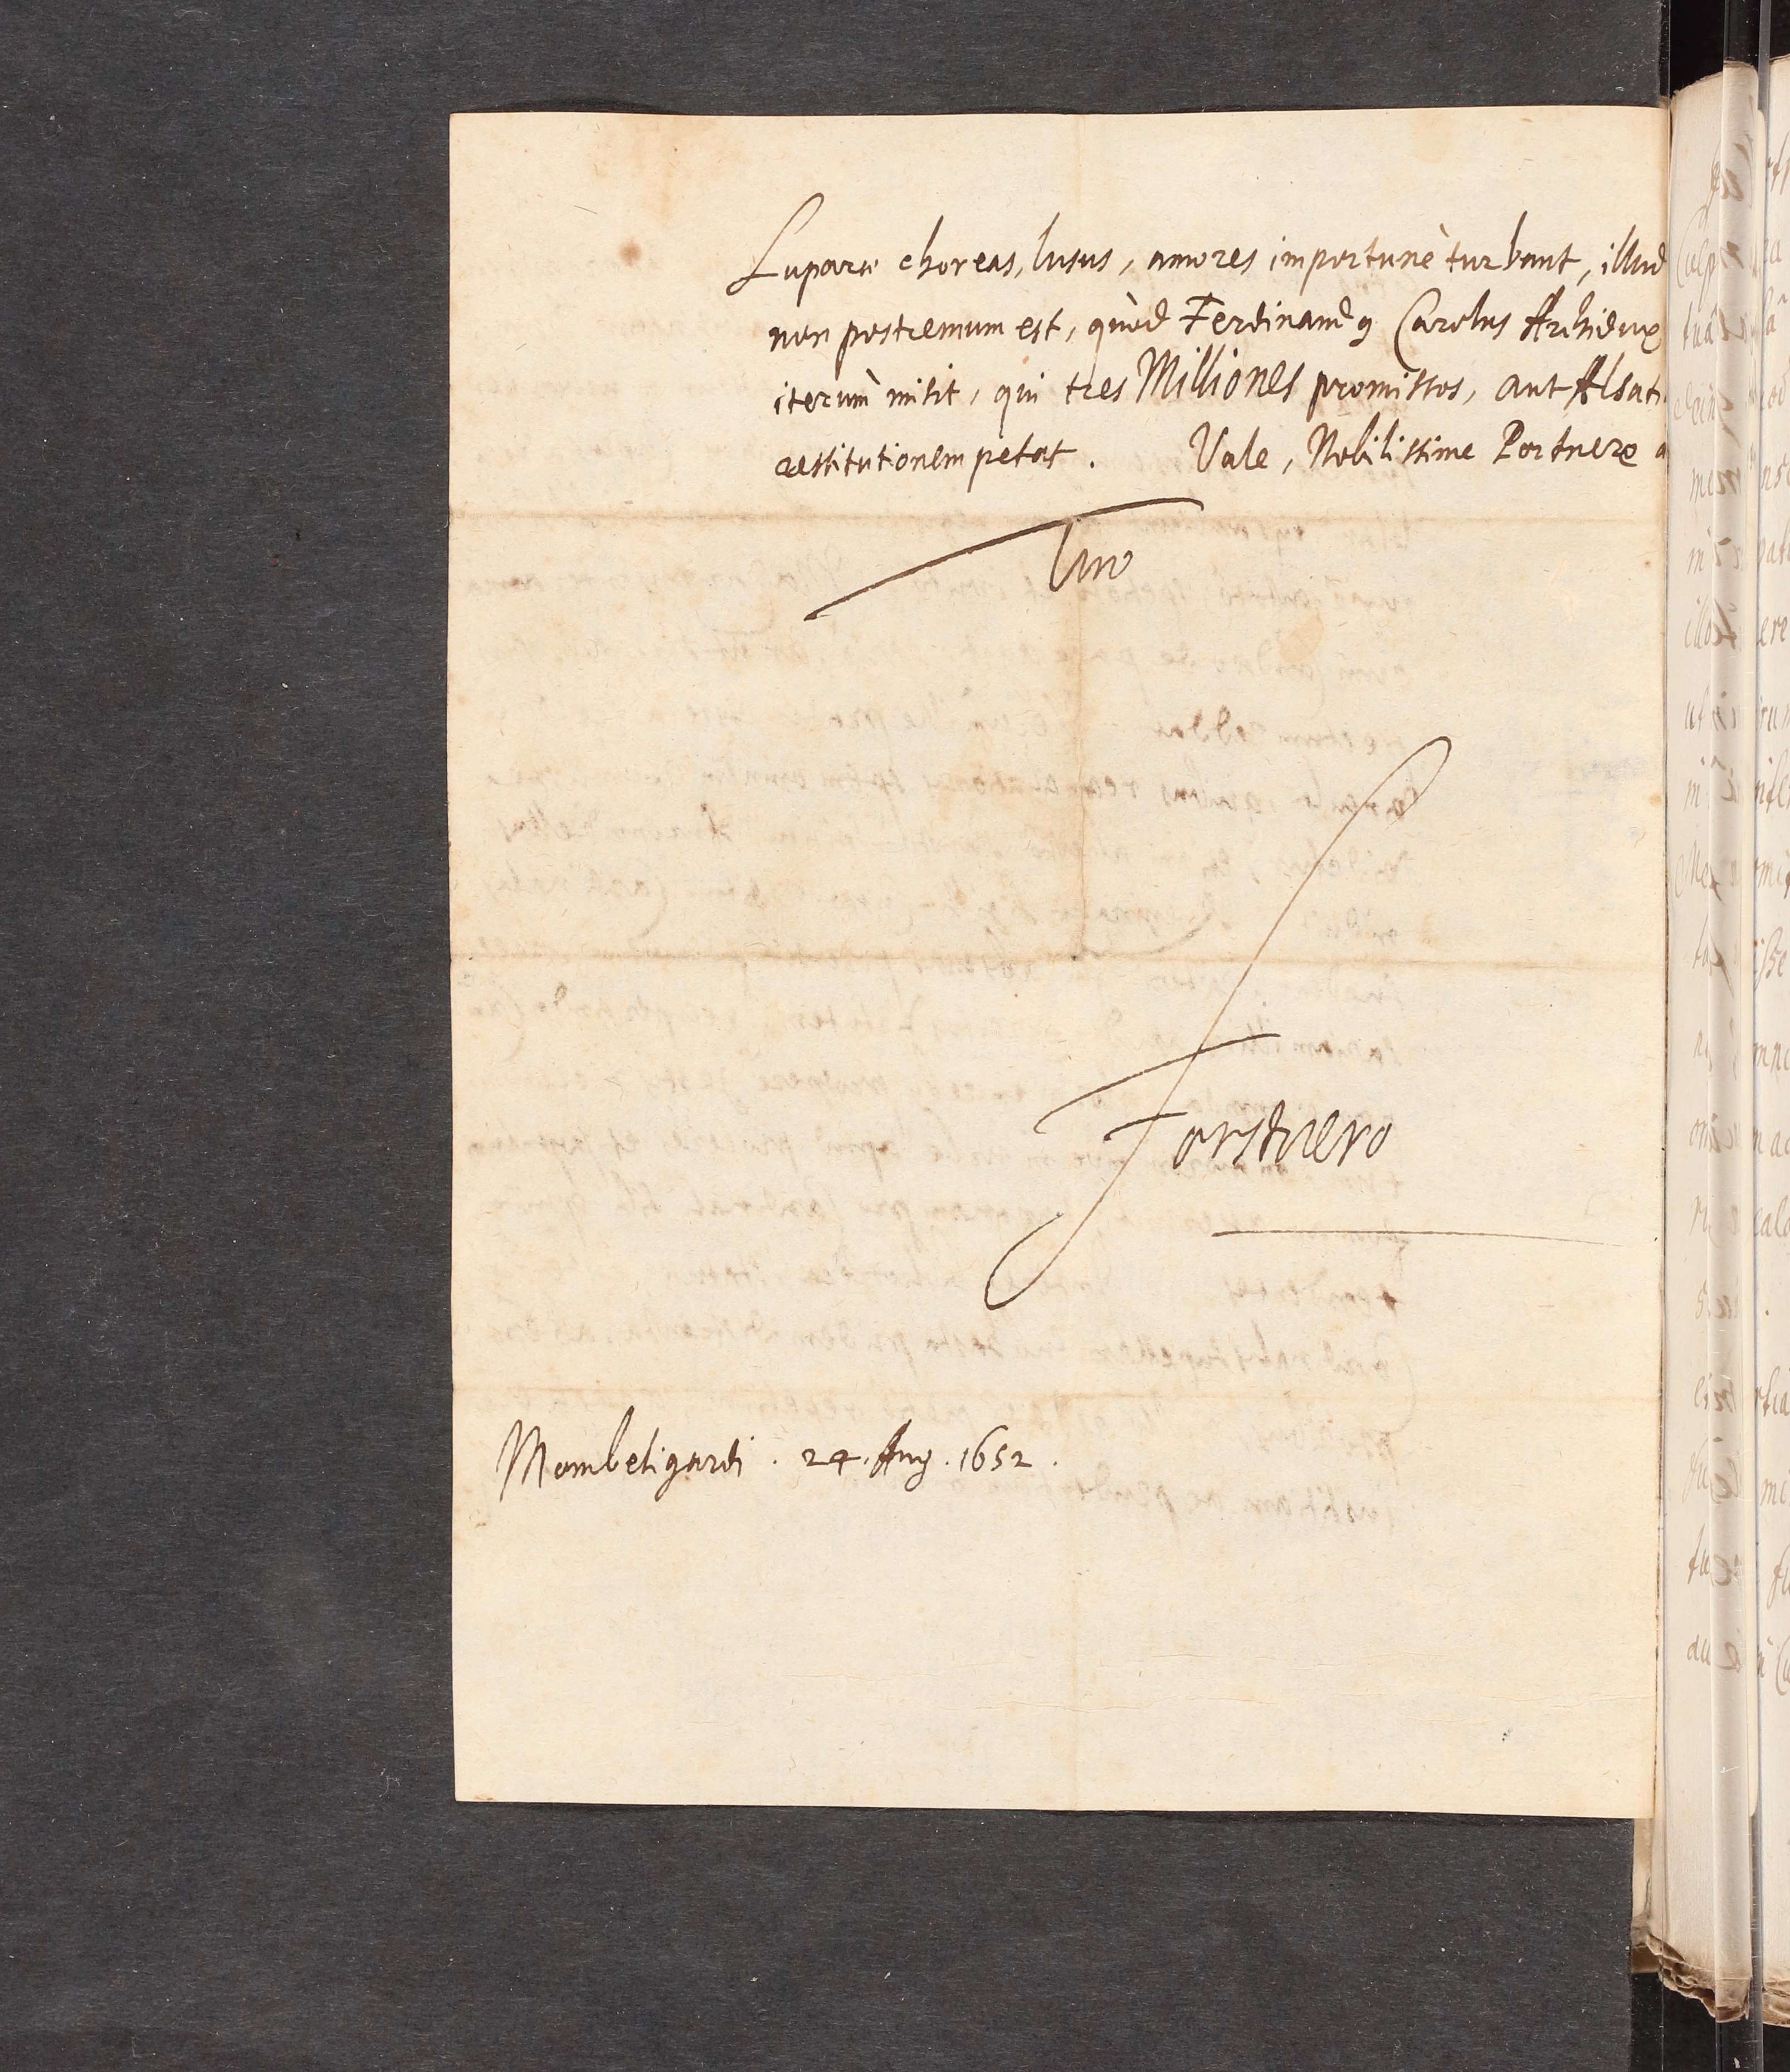 Luparæ choreas, lusus, amores importunè turbant, illud
non postremum est, quòd Ferdinandꝯ Carolus Archidux
iterum misit, qui tres Milliones promissos, aut Alsati
restitutionem petat. Vale, Nobilissime Portnere a
Tuo
Forstnero
Mombeligardi. 24. Aug. 1652.